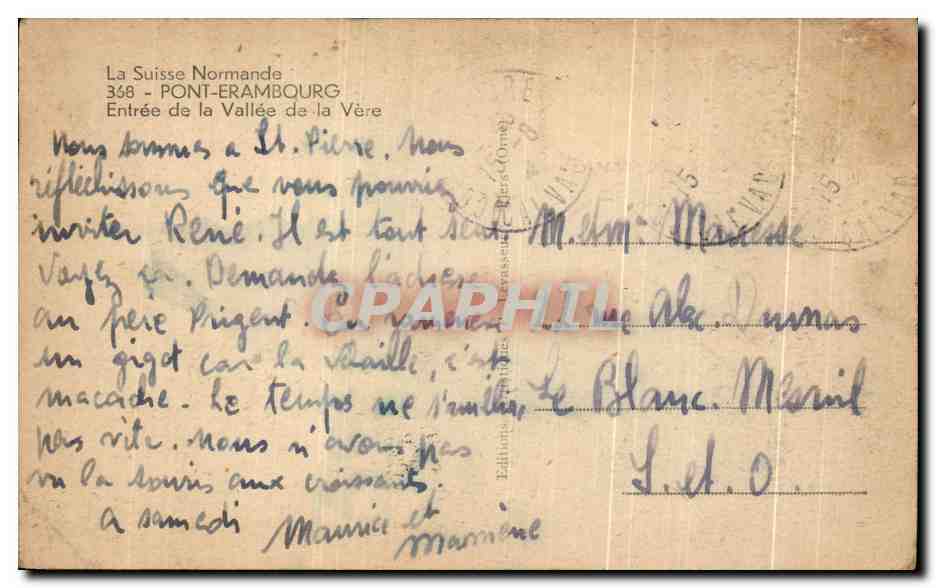 La Suisse Normande
368 - PONT-ERAMBOURG
Entrée de la Vallée de la Vère
Nous sommes a St. Pierre. Nous
réfléchissons que vous pourriez
inviter René. Il est tout seul
Voyez ça. Demandez l'adresse
au père Prigent.
un gigot car la volaille, c'est
macache. Le temps ne s'améliore
pas vite. Nous n'avons pas
vu la souris aux croissants.
a samedi Maurice et
M. et Mme
Rue Alex. Dumas
Le Blanc. Mesnil
S. et. O.
Editions Levasseur Flers (Orne)
CPAPHIL